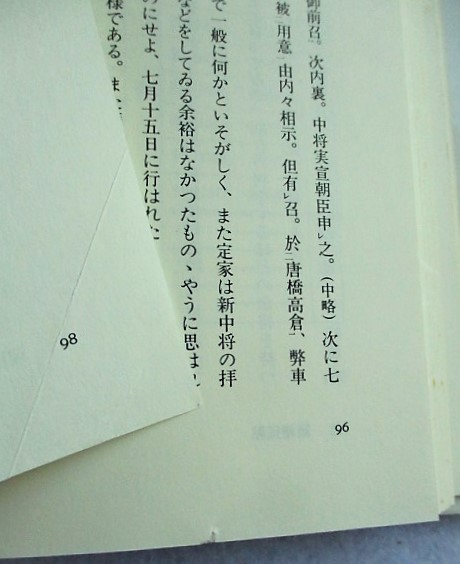 御前召。次内裏。中将実宣朝臣申レ之。（中略）次に七
被二用意一由内々相示。但有レ召。於二唐橋高倉一、弊車
で一般に何かといそがしく、また定家は新中将の拝
などをしてゐる余裕はなかつたものゝやうに思は
めにせよ、七月十五日に行はれた
様である。また
96
98